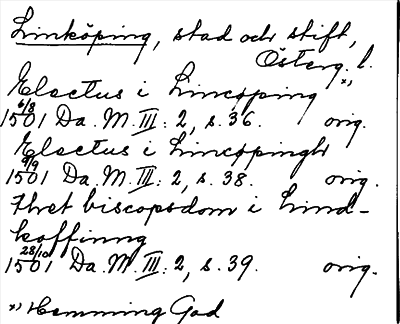 Linköping, stad och stift,
Österg. l.
Electus i Lincöping *)
1501 6/8 Da. M. III: 2, s. 36. orig.
Electus i Linköpingh
1501 9/9 Da. M. III: 2, s. 38. orig.
Thet biscopsdom i Lind-
köffinng
1501 28/10 Da. M. III: 2, s. 39. orig.
*) Hemming Gad